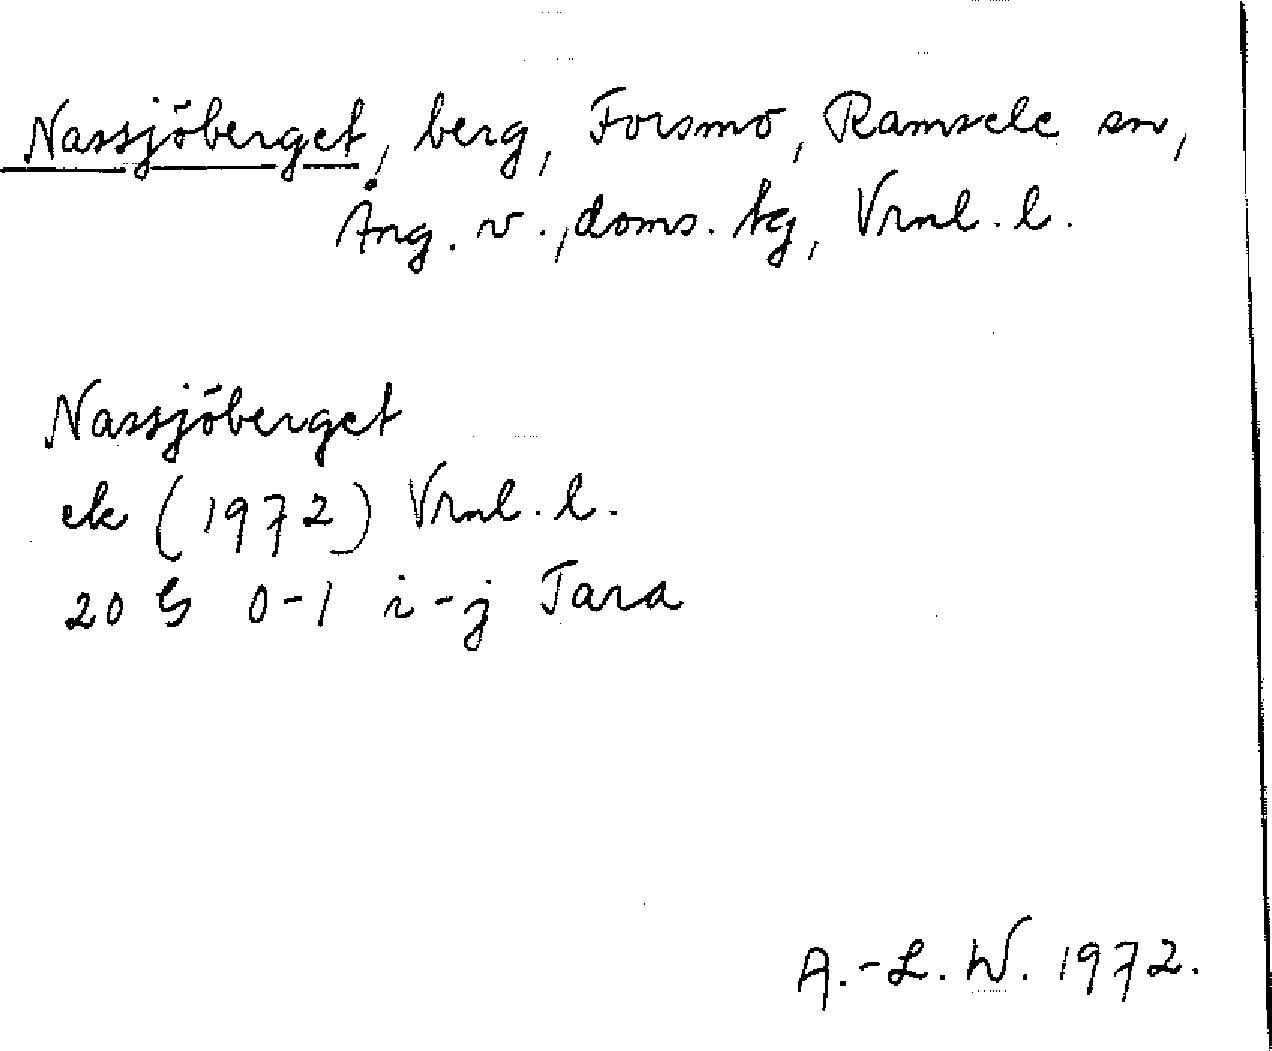 Nassjöberget, berg, Forsmo, Ramsele sn,
Ång. v., doms. tg, Vrnl. l.
Nassjöberget
ek (1972) Vrnl. l.
20 G 0-1 i-j Tara
A.-L. W. 1972.